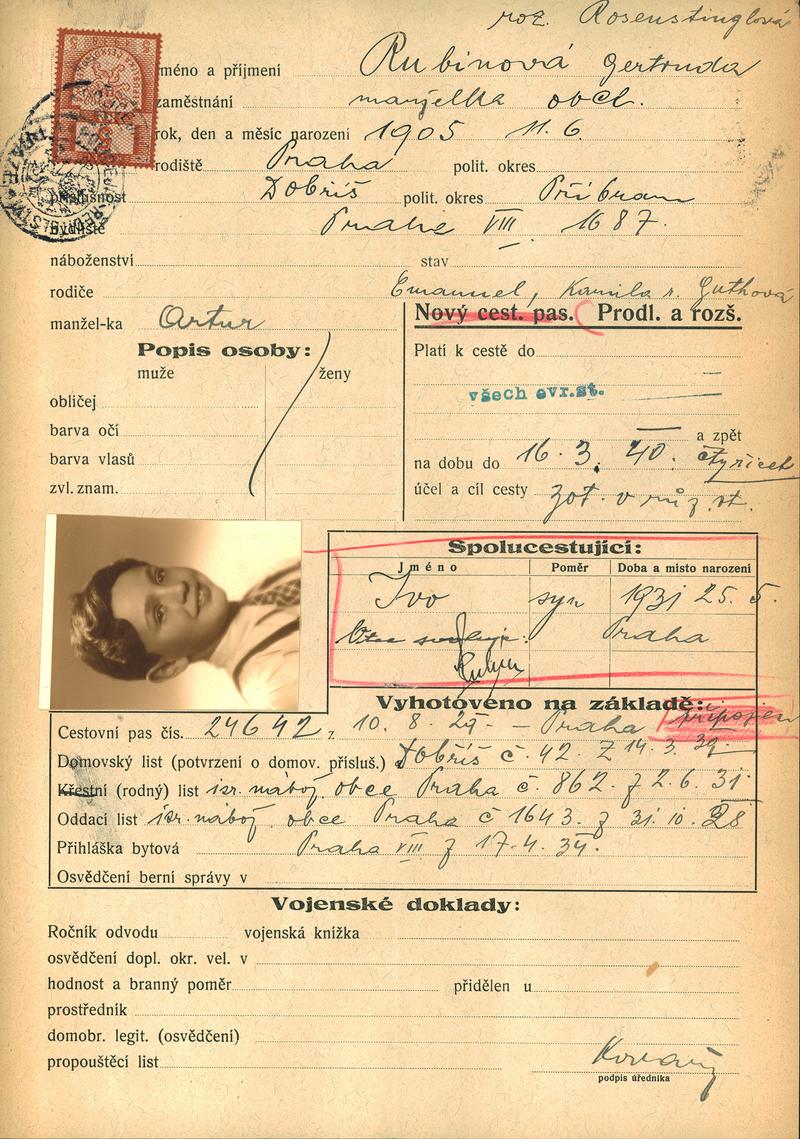 roz. Rosenstinglová
jméno a příjmení Rubinová Gertruda
zaměstnání manželka obch.
rok, den a měsíc narození 1905 11. 6.
rodiště Praha polit. okres
příslušnost Dobříš polit. okres Příbram
bydliště Praha VIII 1687.
náboženství stav
rodiče Emanuel, Kamila r. Guthová
manžel-ka Artur
Nový cest. pas. Prodl. a rozš.
Popis osoby:
muže ženy
obličej
barva očí
barva vlasů
zvl. znam.
Platí k cestě do
všech evr. st.
a zpět
na dobu do 16. 3. 40. čtyřicet
účel a cíl cesty zot. v růz. st.
Spolucestující:
Jméno Poměr Doba a místo narození
Ivo syn 1931 25. 5.
Praha
Rubin
Vyhotoveno na základě:
připojen
Cestovní pas čís. 24642 z 10. 8. 29 – Praha
Domovský list (potvrzení o domov. přísluš.) Dobříš č. 42. z 14. 3. 39
Křestní (rodný) list isr. nábož. obce Praha č. 862. z 2. 6. 31
Oddací list isr. nábož. obce Praha č 1643. z 31. 10. 28
Přihláška bytová Praha VIII z 17. 4. 34.
Osvědčení berní správy v
Vojenské doklady:
Ročník odvodu vojenská knížka
osvědčení dopl. okr. vel. v
hodnost a branný poměr přidělen u
prostředník
domobr. legit. (osvědčení)
propouštěcí list
podpis úředníka